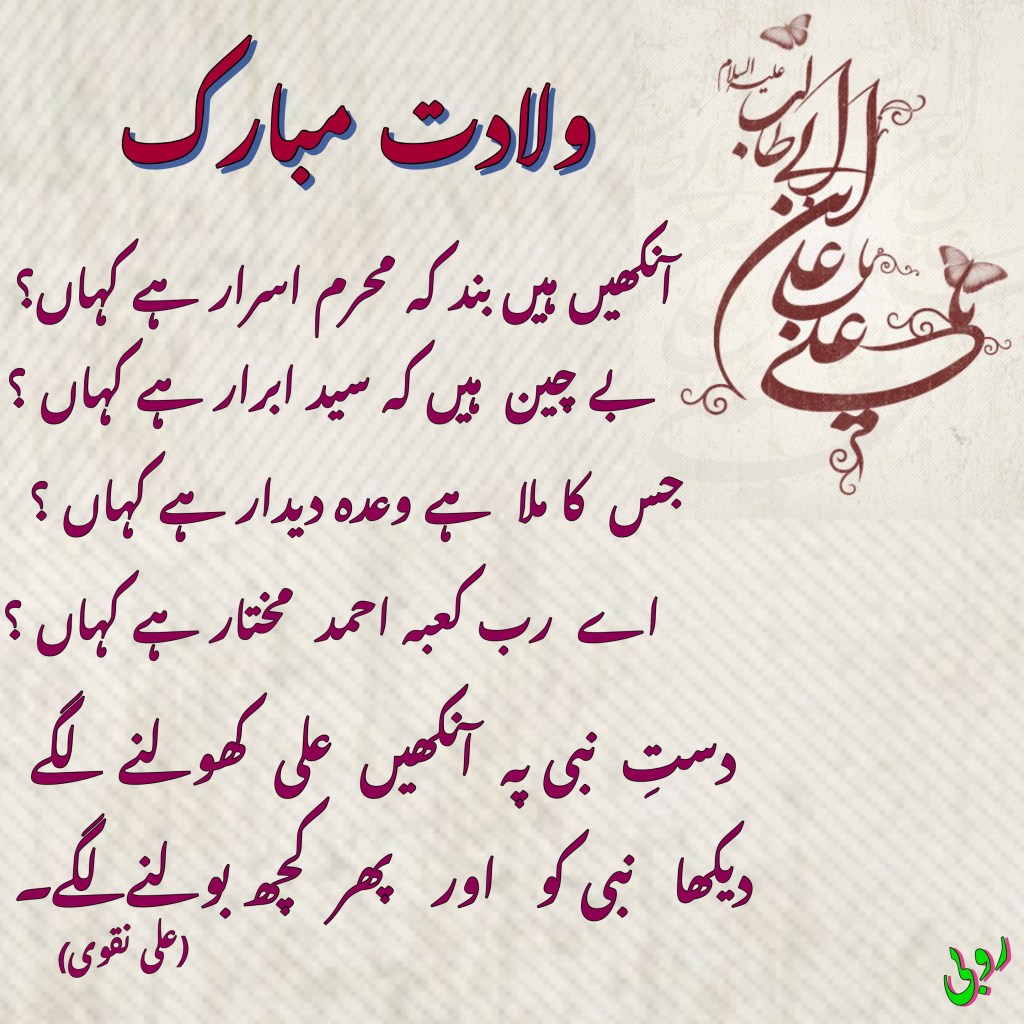 ولادت مبارک
علیہ السلام
علی ابن ابی طالب
آنکھیں ہیں بند کہ محرم اسرار ہے کہاں؟
بے چین ہیں کہ سید ابرار ہے کہاں ؟
جس کا ملا ہے وعدہ دیدار ہے کہاں ؟
اے رب کعبہ احمد مختار ہے کہاں ؟
دستِ نبی پہ آنکھیں علی کھولنے لگے
دیکھا نبی کو اور پھر کچھ بولنے لگے۔
(علی نقوی)
روبی